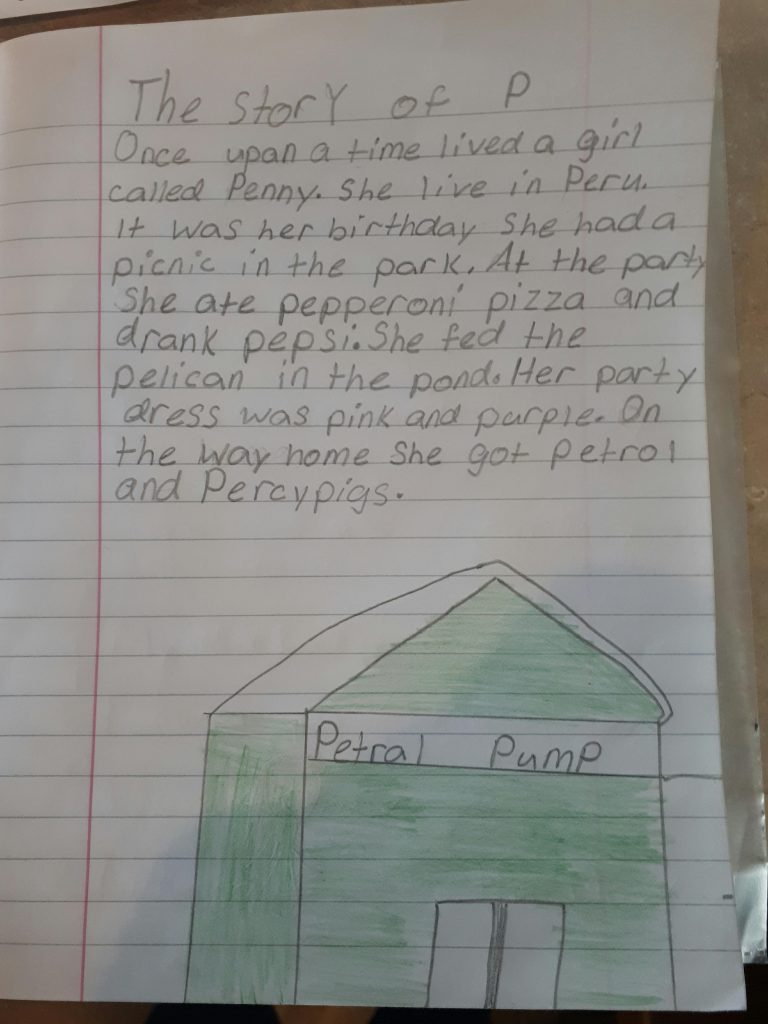 The story of P
Once upon a time lived a girl
called Penny. She live in Peru.
It was her birthday She had a
picnic in the park. At the party
She ate pepperoni pizza and
drank pepsi. She fed the
pelican in the pond. Her party
dress was pink and purple. On
the way home She got Petrol
and Percypigs.
Petral Pump